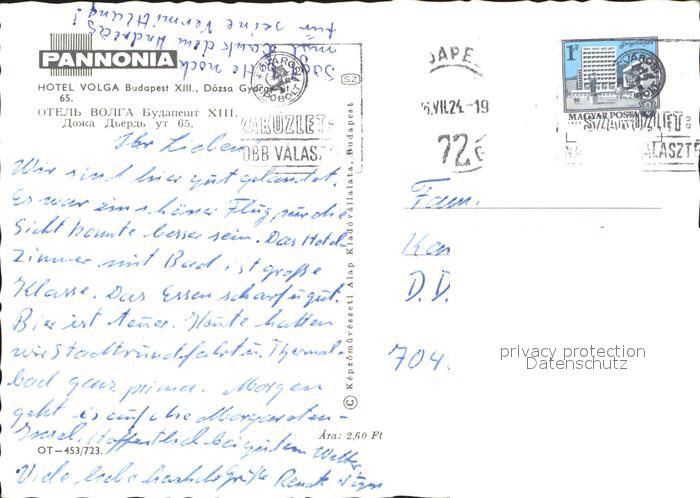 für seine Vermittlung!
dank dem Andreas
PANNONIA
HOTEL VOLGA Budapest XIII., Dózsa György út
65.
ОТЕЛЬ ВОЛГА Будапешт XIII.
Дожа Дьердь ут 65.
SZ
Ihr Lieben
Wir sind hier gut gelandet.
Es war ein schöner Flug, nur die
Sicht konnte besser sein. Das Hotel-
zimmer mit Bad ist große
Klasse. Das Essen scharf u gut.
Bier ist teuer. Heute hatten
wir Stadtrundfahrt u. Thermal-
bad ganz prima. Morgen
geht es auf die Margareten-
Insel. Hoffentlich bei gutem Wetter.
Viele liebe
OT-453/723.
Ára: 2,60 Ft
© Képzőművészeti Alap Kiadóvállalata, Budapest
1Ft
MAGYAR POSTA
VII.24.-19
72
SZAKÜZLET:
JOBB VÁLASZ
SZAKÜZLET:
VÁLASZTÉ
Fam.
Ka
D.D.
704
privacy protection
Datenschutz